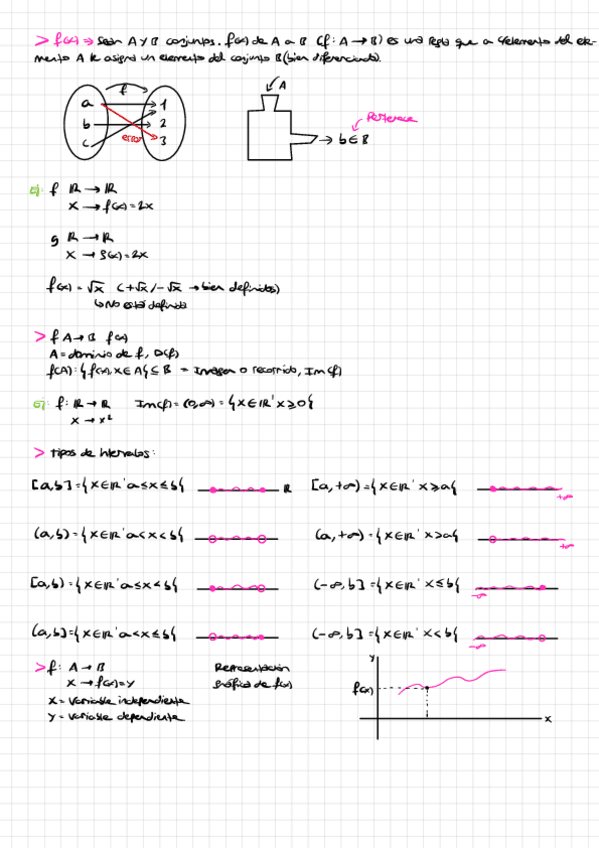 > f(x) ⇒ Sean A y B conjuntos. f(x) de A a B (f: A → B) es una regla que a elemento del ele-
mento A le asigna un elemento del conjunto B (bien diferenciado).
f
a 1
b 2
c 3
error
A
Pertenece
→ b ∈ B
Ej: f ℝ → ℝ
x → f(x) = 2x
g ℝ → ℝ
x → g(x) = 2x
f(x) = √x (+√x / -√x → bien definidos)
↳ No está definida
> f A → B f(x)
A = dominio de f, D(f)
f(A): {f(x), x ∈ A} ⊆ B = Imagen o recorrido, Im(f)
Ej: f: ℝ → ℝ Im(f) = (0, ∞) = {x ∈ ℝ ' x ≥ 0}
x → x²
> Tipos de intervalos:
[a, b] = {x ∈ ℝ ' a ≤ x ≤ b} ℝ [a, +∞) = {x ∈ ℝ ' x ≥ a} +∞
(a, b) = {x ∈ ℝ ' a < x < b} (a, +∞) = {x ∈ ℝ ' x > a} +∞
[a, b) = {x ∈ ℝ ' a ≤ x < b} (-∞, b] = {x ∈ ℝ ' x ≤ b} -∞
(a, b] = {x ∈ ℝ ' a < x ≤ b} (-∞, b] = {x ∈ ℝ ' x < b} -∞
> f: A → B
x → f(x) = y
x = variable independiente
y = variable dependiente
Representación
gráfica de f(x)
y
f(x)
x